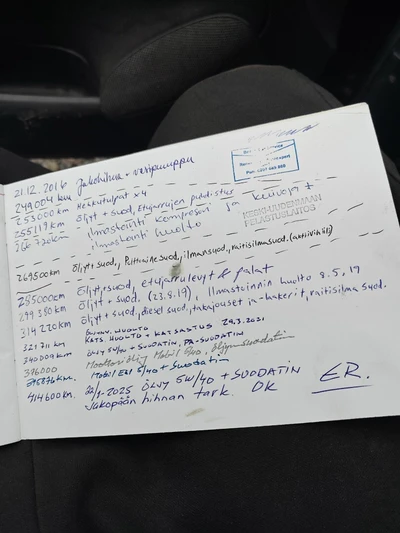 21.12.2016 Jakohihna + vesipumppu
249004 km Hehkutulpat x4
253000 km Öljyt + suod, Etujarrujen puhdistus
255119 km ilmastointi kompressori ja kuivain +
ilmastointi huolto
KESKI-UUDENMAAN
PELASTUSLAITOS
269500km Öljyt + suod., Polttoaine suod., ilmansuod., raitisilmasuod. (aktiivihiili)
285000km Öljyt + suod, etujarrulevyt & palat
299380 km Öljyt + suod. (23.8.19), Ilmastoinnin huolto 8.5.19
314220 km Öljyt + suod, diesel suod, takajouset ja
raitisilma suod.
321711 km HUOLTO + KATSASTUS
340009km ÖLJY 5W/40 + SUODATIN, PA-SUODATIN
376000 Moottoriöljy Mobil 5/40, öljynsuodatin
Mobil ESP 5/40 + Suodatin
414600km. 22/1-2025 ÖLJY 5W/40 + SUODATIN
Jakopään hihnan tark. OK ER.